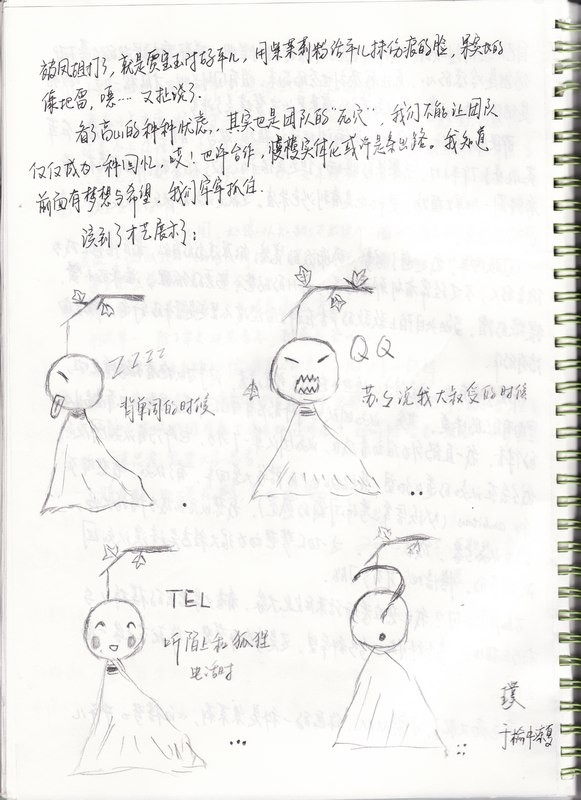 被风姐打了，就是贾宝玉时的平儿，用紫茉莉粉给平儿抹伤痕的脸，果实的
像地雷，嘿… 又扯淡了.
看了高山的种种忧虑，其实也是团队的"死穴"，我们不能让团队
仅仅成为一种回忆，哎！也许合作，慢慢实体化或许是条出路。我知道
前面有梦想与希望，我们牢牢抓住.
该到了才艺展示了：
ZZZZ
背单词的时候
QQ
苏丘说我大叔受的时候
TEL
听陌上和狐狸
电话时
璞
于榆中